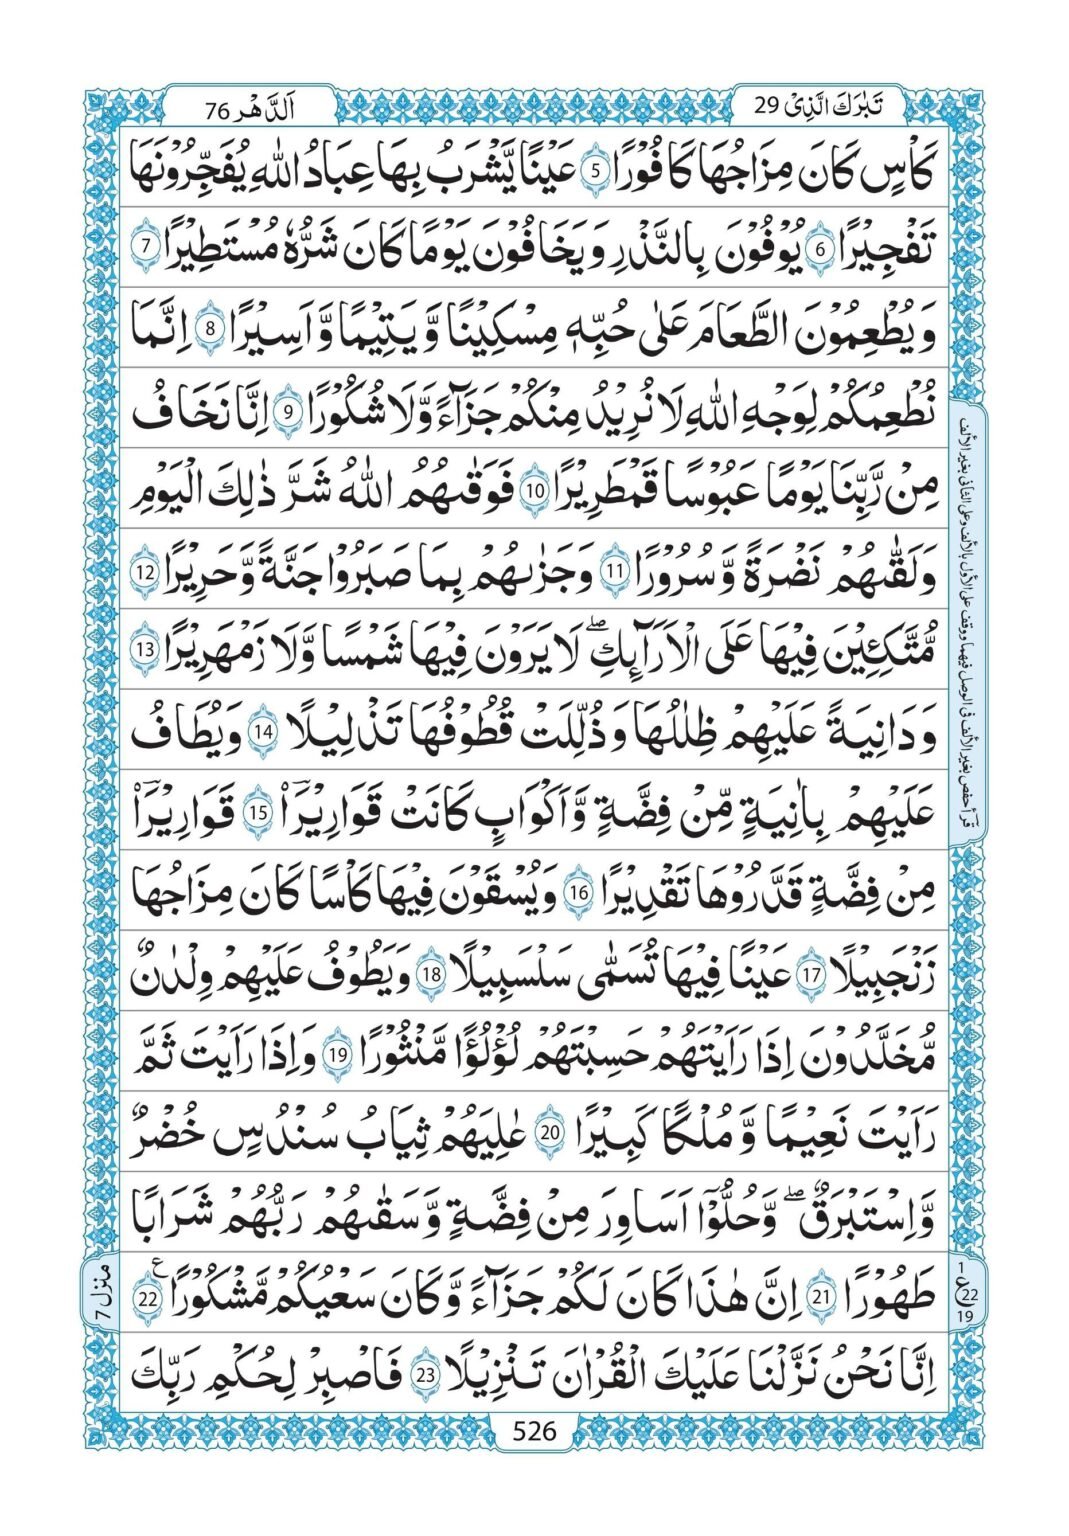 تَبٰرَكَ الَّذِیْ 29
اَلدَّهْر 76
كَاْسٍ كَانَ مِزَاجُهَا كَافُوْرًا 5 عَیْنًا یَّشْرَبُ بِهَا عِبَادُ اللّٰهِ یُفَجِّرُوْنَهَا
تَفْجِیْرًا 6 یُوْفُوْنَ بِالنَّذْرِ وَ یَخَافُوْنَ یَوْمًا كَانَ شَرُّهٗ مُسْتَطِیْرًا 7
وَ یُطْعِمُوْنَ الطَّعَامَ عَلٰى حُبِّهٖ مِسْكِیْنًا وَّ یَتِیْمًا وَّ اَسِیْرًا 8 اِنَّمَا
نُطْعِمُكُمْ لِوَجْهِ اللّٰهِ لَا نُرِیْدُ مِنْكُمْ جَزَآءً وَّ لَا شُكُوْرًا 9 اِنَّا نَخَافُ
مِنْ رَّبِّنَا یَوْمًا عَبُوْسًا قَمْطَرِیْرًا 10 فَوَقٰىهُمُ اللّٰهُ شَرَّ ذٰلِكَ الْیَوْمِ
وَ لَقّٰىهُمْ نَضْرَةً وَّ سُرُوْرًا 11 وَ جَزٰىهُمْ بِمَا صَبَرُوْا جَنَّةً وَّ حَرِیْرًا 12
مُّتَّكِـِٕیْنَ فِیْهَا عَلَى الْاَرَآىِٕكِ ۖ لَا یَرَوْنَ فِیْهَا شَمْسًا وَّ لَا زَمْهَرِیْرًا 13
وَ دَانِیَةً عَلَیْهِمْ ظِلٰلُهَا وَ ذُلِّلَتْ قُطُوْفُهَا تَذْلِیْلًا 14 وَ یُطَافُ
عَلَیْهِمْ بِاٰنِیَةٍ مِّنْ فِضَّةٍ وَّ اَكْوَابٍ كَانَتْ قَوَارِیْرَاۡ 15 قَوَارِیْرَاۡ
مِنْ فِضَّةٍ قَدَّرُوْهَا تَقْدِیْرًا 16 وَ یُسْقَوْنَ فِیْهَا كَاْسًا كَانَ مِزَاجُهَا
زَنْجَبِیْلًا 17 عَیْنًا فِیْهَا تُسَمّٰى سَلْسَبِیْلًا 18 وَ یَطُوْفُ عَلَیْهِمْ وِلْدَانٌ
مُّخَلَّدُوْنَ اِذَا رَاَیْتَهُمْ حَسِبْتَهُمْ لُؤْلُؤًا مَّنْثُوْرًا 19 وَ اِذَا رَاَیْتَ ثَمَّ
رَاَیْتَ نَعِیْمًا وَّ مُلْكًا كَبِیْرًا 20 عٰلِیَهُمْ ثِیَابُ سُنْدُسٍ خُضْرٌ
وَّ اِسْتَبْرَقٌ ۖ وَّ حُلُّوْۤا اَسَاوِرَ مِنْ فِضَّةٍ وَّ سَقٰىهُمْ رَبُّهُمْ شَرَابًا
طَهُوْرًا 21 اِنَّ هٰذَا كَانَ لَكُمْ جَزَآءً وَّ كَانَ سَعْیُكُمْ مَّشْكُوْرًا 22 ع
اِنَّا نَحْنُ نَزَّلْنَا عَلَیْكَ الْقُرْاٰنَ تَنْزِیْلًا 23 فَاصْبِرْ لِحُكْمِ رَبِّكَ
قرأ حفص بغير الألف فى الوصل فيهما ووقف على الأول بالألف وعلى الثانى بغير الألف
منزل 7
ا
22
19
526